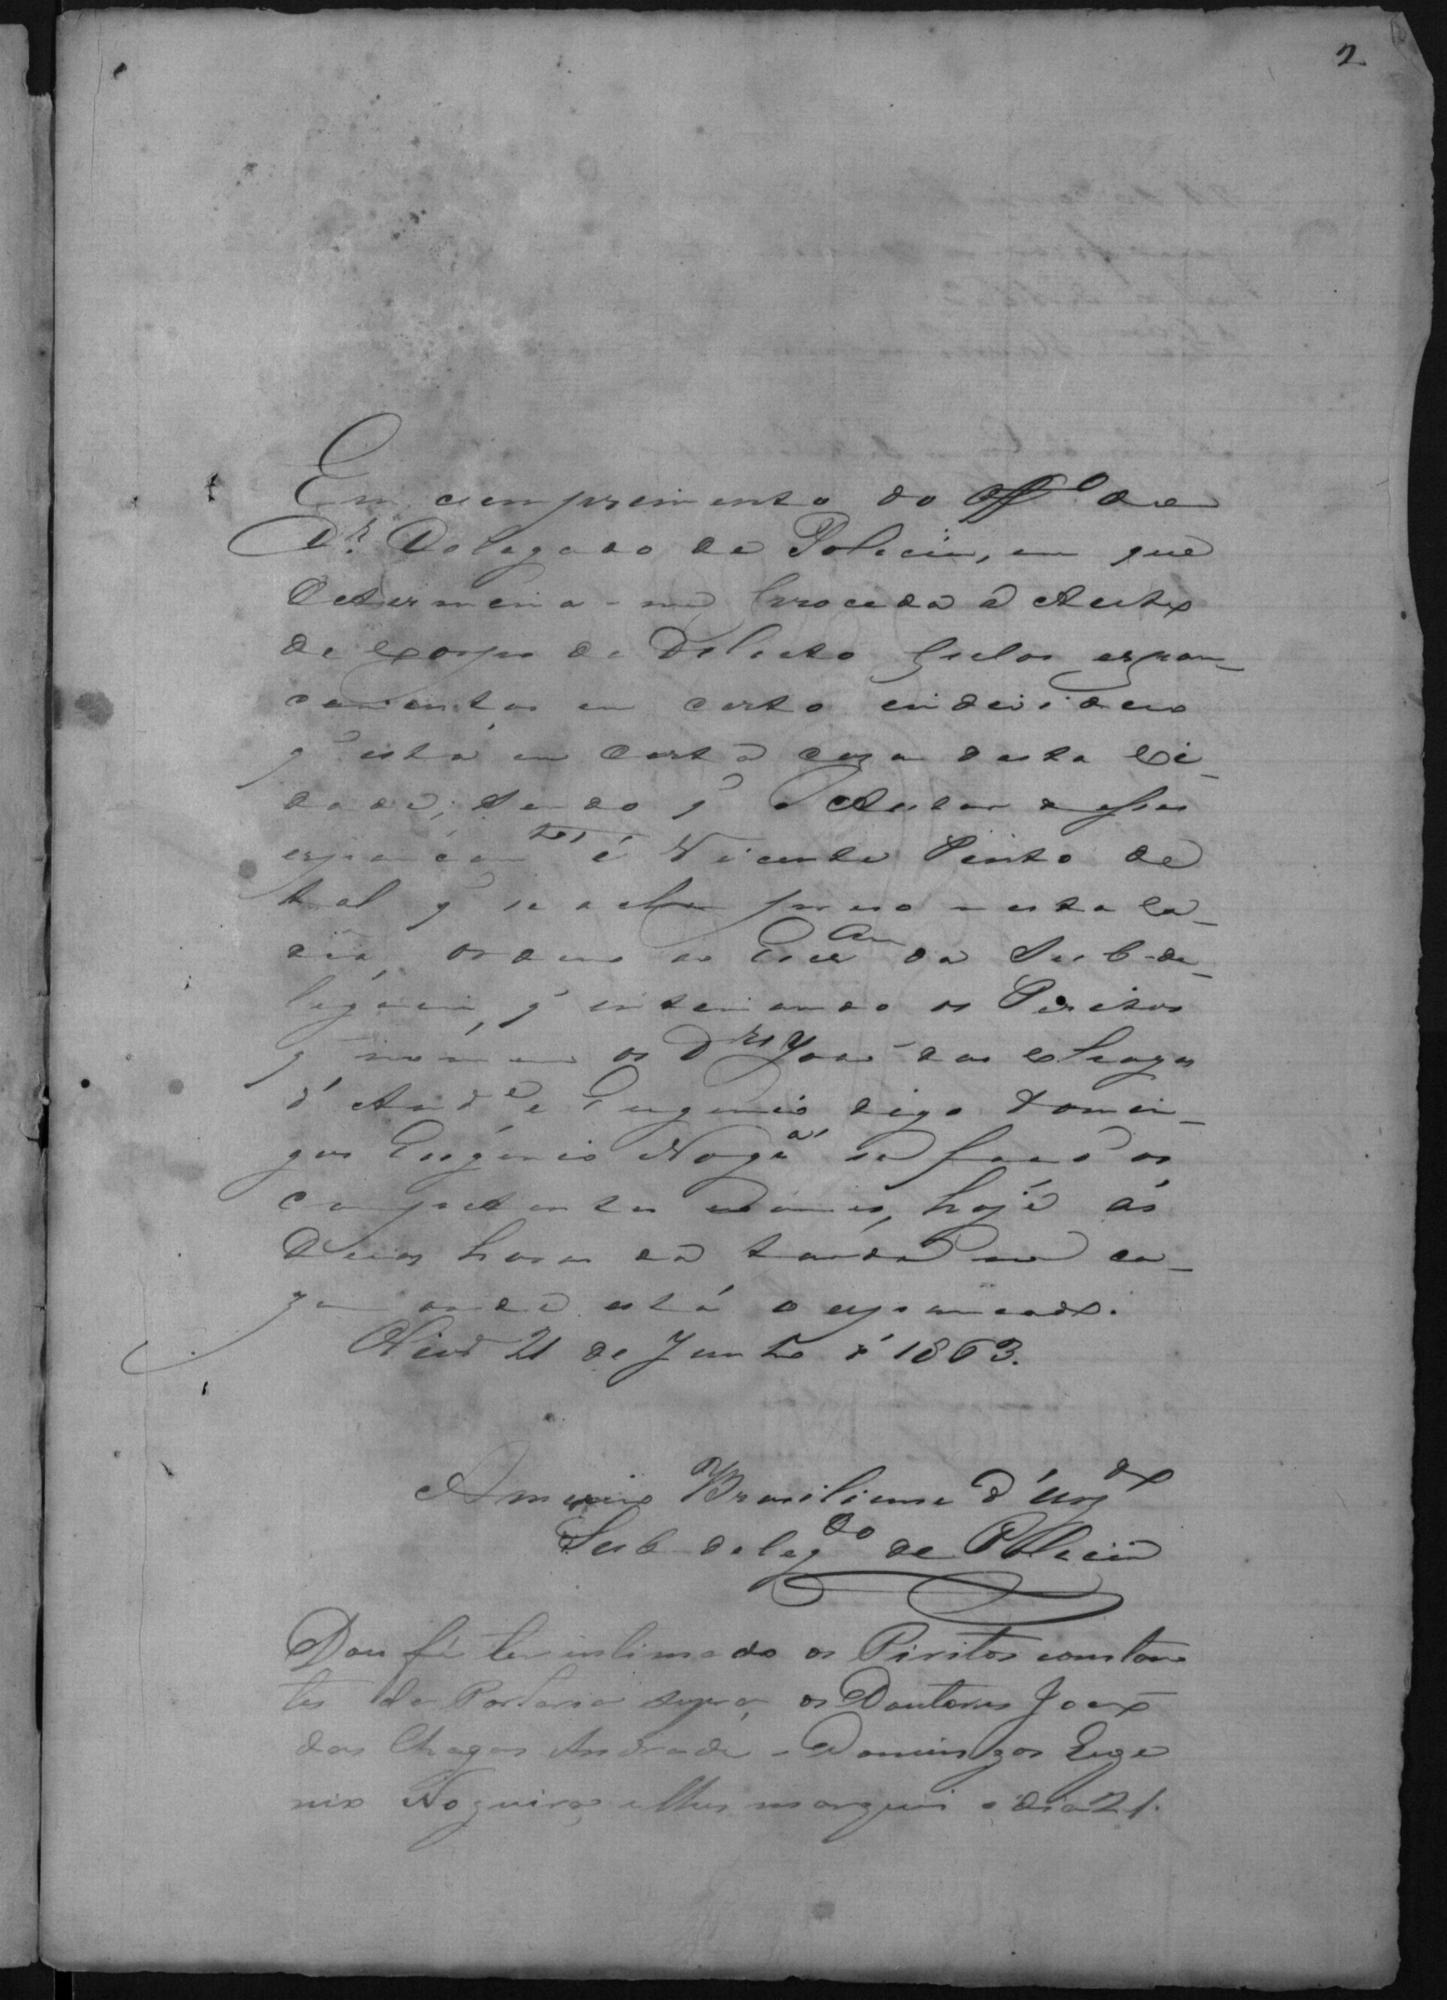 2
Em cumprimento do Off.º do
Dr. Delegado de Policia, em que
determina-me proceda a Auto
de Corpo de Delicto pelos espan-
camentos em certo individuo
q' está em certa caza desta Ci-
dade; sendo q' o Autor desses
espancam.tos é Vicente Pinto de
tal q' se acha preso nesta Ca-
dêa, ordeno ao Escr.am da Sub-de-
legacia, q' intimando os Peritos
q' nomeio os D.res João das Chagas
d'And.e e Eugenio digo Domin-
gos Eugenio Nog.ra se faça os
competentes exames, hoje ás
Duas horas da tarde na ca-
za onde está o espancado.
21 de Junho d' 1863.
Americo Brasiliense d'
Sub-deleg.do de Policia
Dou fé ter intimado os Piritos constan
tes da Portaria supra, os Doutores João
das Chagas Andrade e Domingos Euge
nio Nogueira, e lhes marquei o dia 21.